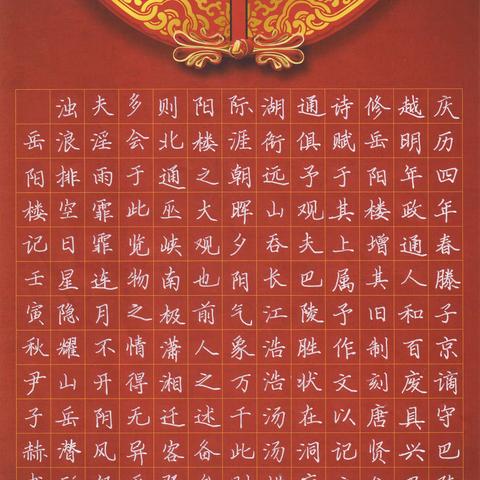 庆历四年春滕子京谪守巴
越明年政通人和百废具兴
修岳阳楼增其旧制刻唐贤
诗赋于其上属予作文以记
通俱予观夫巴陵胜状在洞
湖衔远山吞长江浩浩汤汤
际涯朝晖夕阴气象万千此
阳楼之大观也前人之述备
则北通巫峡南极潇湘迁客
多会于此览物之情得无异
夫淫雨霏霏连月不开阴风
浊浪排空日星隐耀山岳潜
岳阳楼记壬寅秋尹子赫